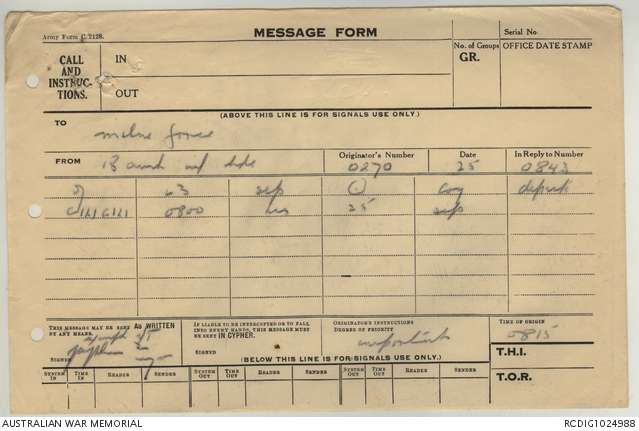 Army Form C/2128.
MESSAGE FORM
Serial No.
CALL AND INSTRUCTIONS.
IN
OUT
No. of Groups
GR.
OFFICE DATE STAMP
(ABOVE THIS LINE IS FOR SIGNALS USE ONLY.)
TO
Milne Force
FROM
Originator's Number
Date
In Reply to Number
18 Aust inf bde
0270
25
0843
63 sep coy
0800 hrs 25 sep
THIS MESSAGE MAY BE SENT AS WRITTEN BY ANY MEANS.
SIGNED
IF LIABLE TO BE INTERCEPTED OR TO FALL INTO ENEMY HANDS, THIS MESSAGE MUST BE SENT IN CYPHER.
SIGNED
ORIGINATOR'S INSTRUCTIONS
DEGREE OF PRIORITY
important
TIME OF ORIGIN
0815
T.H.I.
T.O.R.
(BELOW THIS LINE IS FOR SIGNALS USE ONLY.)
SYSTEM IN TIME IN READER SENDER SYSTEM OUT TIME OUT READER SENDER SYSTEM OUT TIME OUT READER SENDER
AUSTRALIAN WAR MEMORIAL
RCDIG1024988